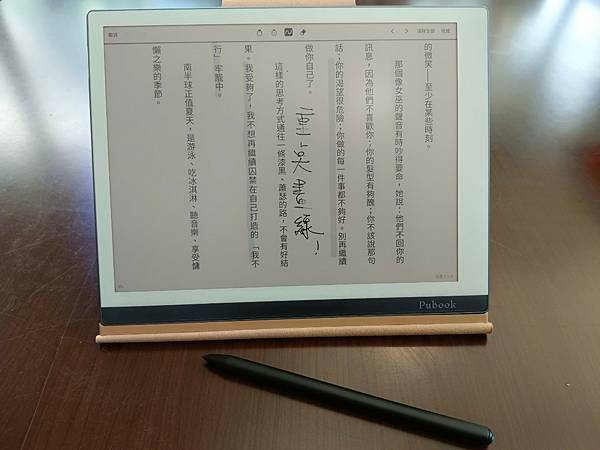 取消
清除全部 完成
的微笑——至少在某些時刻。
那個像女巫的聲音有時吵得要命,她說:他們不回你的
訊息,因為他們不喜歡你;你的髮型有夠醜;你不該說那句
話;你的渴望很危險;你做的每一件事都不夠好。別再繼續
做你自己了。
重點畫線!
這樣的思考方式通往一條漆黑、蕭瑟的路,不會有好結
果。我受夠了,我不想再繼續囚禁在自己打造的「我不
行」牢籠中。
南半球正值夏天,是游泳、吃冰淇淋、聽音樂、享受慵
懶之樂的季節。
Pubook